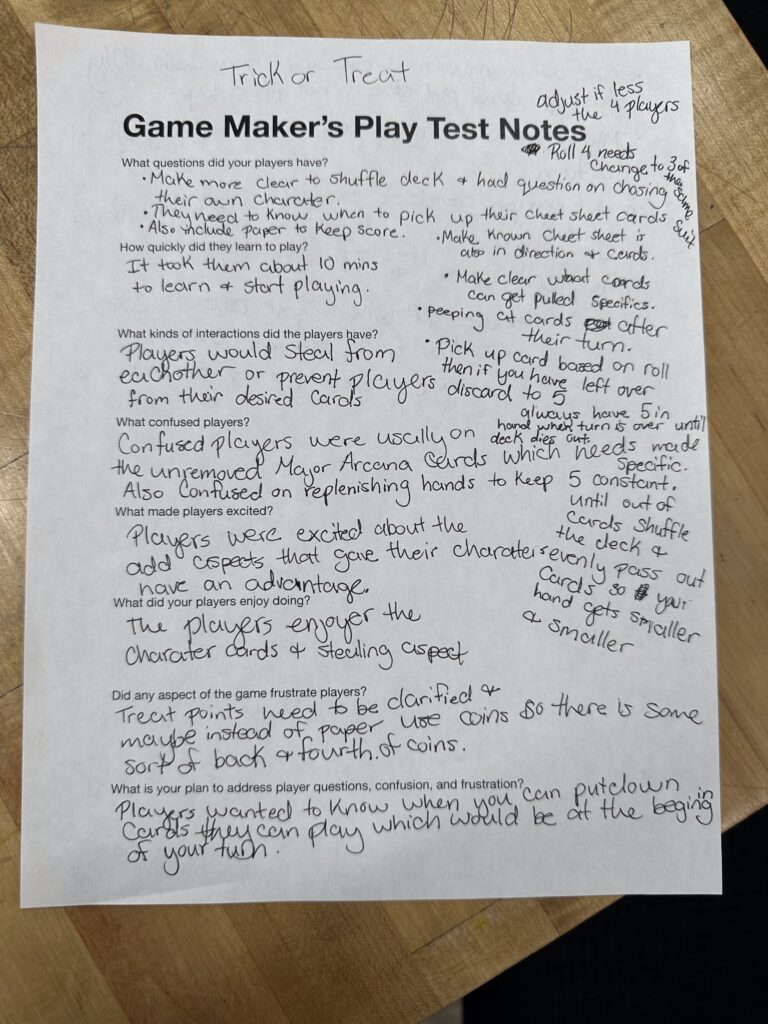 Trick or Treat
adjust if less
the 4 players
Game Maker's Play Test Notes
Roll 4 needs
change to 3 of
the same
suit
What questions did your players have?
• Make more clear to shuffle deck & had question on chosing
their own charater.
• They need to know when to pick up their cheet sheet cards
• Also include paper to keep score.
• Make known cheet sheet is
also in direction & cards.
• Make clear what cards
can get pulled specifics.
• peeping at cards after
their turn.
• Pick up card based on roll
then if you have left over
discard to 5
always have 5 in
hand when turn is over until
deck dies out.
How quickly did they learn to play?
It took them about 10 mins
to learn & start playing.
What kinds of interactions did the players have?
Players would steal from
eachother or prevent players
from their desired cards
What confused players?
Confused players were usally on
the unremoved Major Arcana cards which needs made
specific.
Also confused on replenishing hands to keep 5 constant.
until out of
cards shuffle
the deck &
evenly pass out
cards so your
hand gets smaller
& smaller
What made players excited?
Players were excited about the
add aspects that gave their charaters
have an advantage.
What did your players enjoy doing?
The players enjoyer the
charater cards & stealing aspect
Did any aspect of the game frustrate players?
Treat points need to be clarified &
maybe instead of paper use coins so there is some
sort of back & fourth of coins.
What is your plan to address player questions, confusion, and frustration?
Players wanted to know when you can putdown
cards they can play which would be at the beging in
of your turn.